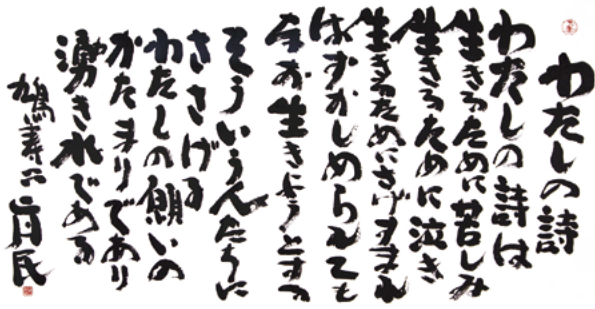 わたしの詩
わたしの詩は
生きるために苦しみ
生きるために泣き
生きるためにさげすまれ
はずかしめられても
なお生きようとする
そういう人たちに
ささげる
わたしの願いの
かたまりであり
湧き水である
鳩寿二 真民